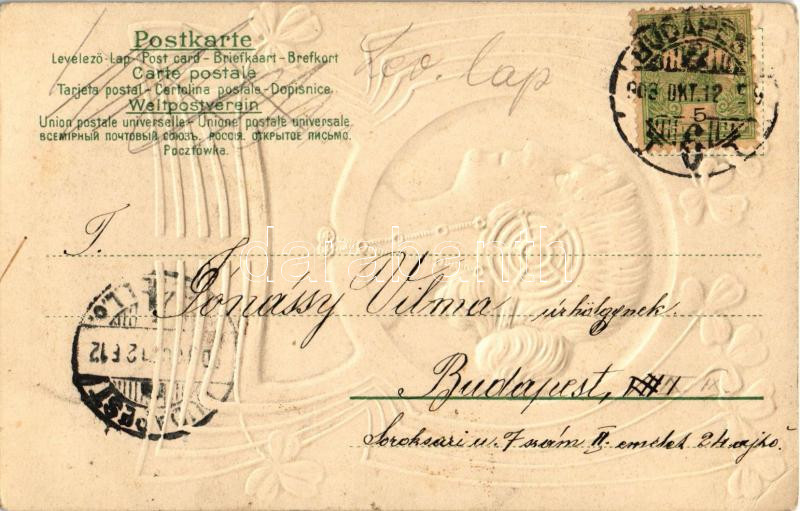 Postkarte
Levelező-Lap - Post card - Briefkaart - Brefkort
Carte postale
Tarjeta postal - Cartolina postale - Dopisnice
Weltpostverein
Union postale universelle - Unione postale universale
ВСЕМІРНЫЙ ПОЧТОВЫЙ СОЮЗЪ. РОССІЯ. ОТКРЫТОЕ ПИСЬМО.
Pocztówka.
Lev. lap
BUDAPEST
903 OKT. 12
5
T.
Jónássy Vilma úrhölgynek
Budapest, IX
Soroksári u. 7 szám II. emelet 24 ajtó.
BUDAPEST
darabanth